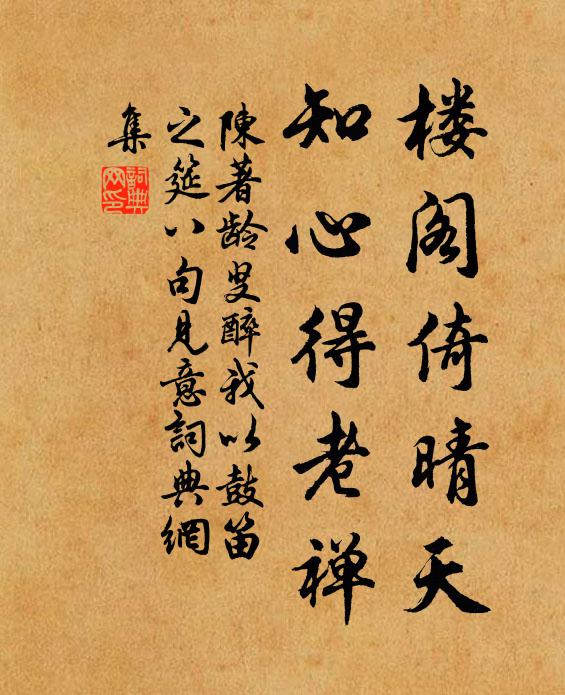 楼阁倚晴天
知心得老禅
陳著龄叟醉我以鼓笛
之筵八句見意詞典網
集
詞典網印